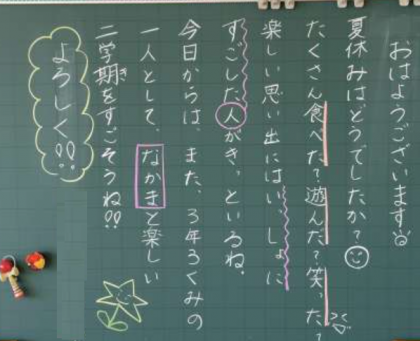 おはようございます
夏休みはどうでしたか?
たくさん食べた?遊んだ?笑った?
楽しい思い出にはいっしょに
すごした人がきっといるね。
今日からは、また、3年3くみの
一人として、なかまと楽しい
二学期をすごそうね!!
き
よろしく!!